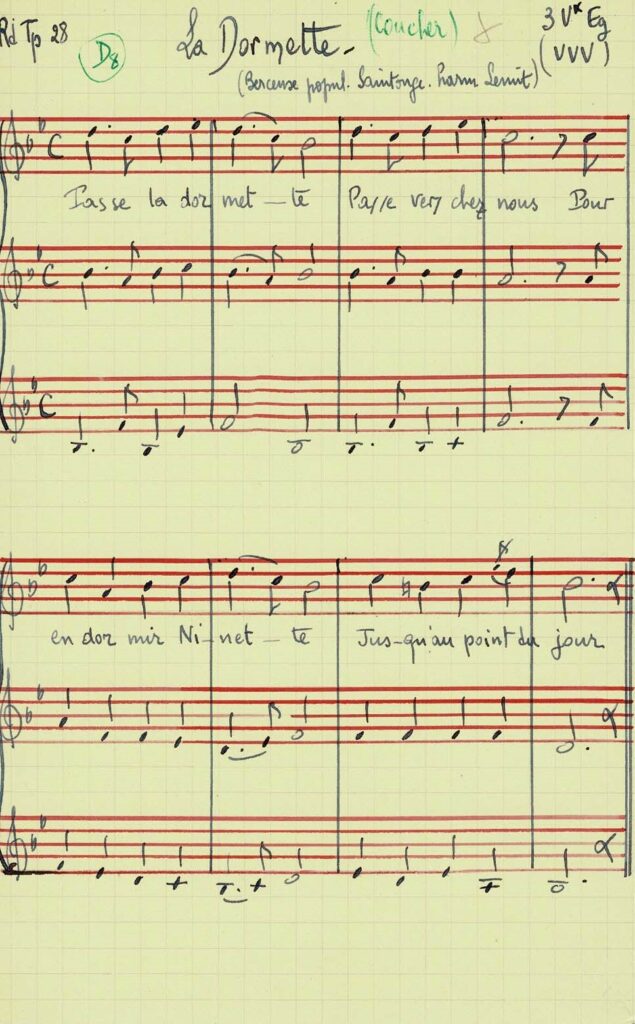 Rd Tp 28
D8
La Dormette -
(Coucher)
3 Vx Eg
(VVV)
(Berceuse popul. Saintonge. harm Lenoit)
Passe la dor met - te Passe vers chez nous Pour
en dor mir Ni - net - te Jus - qu'au point du jour